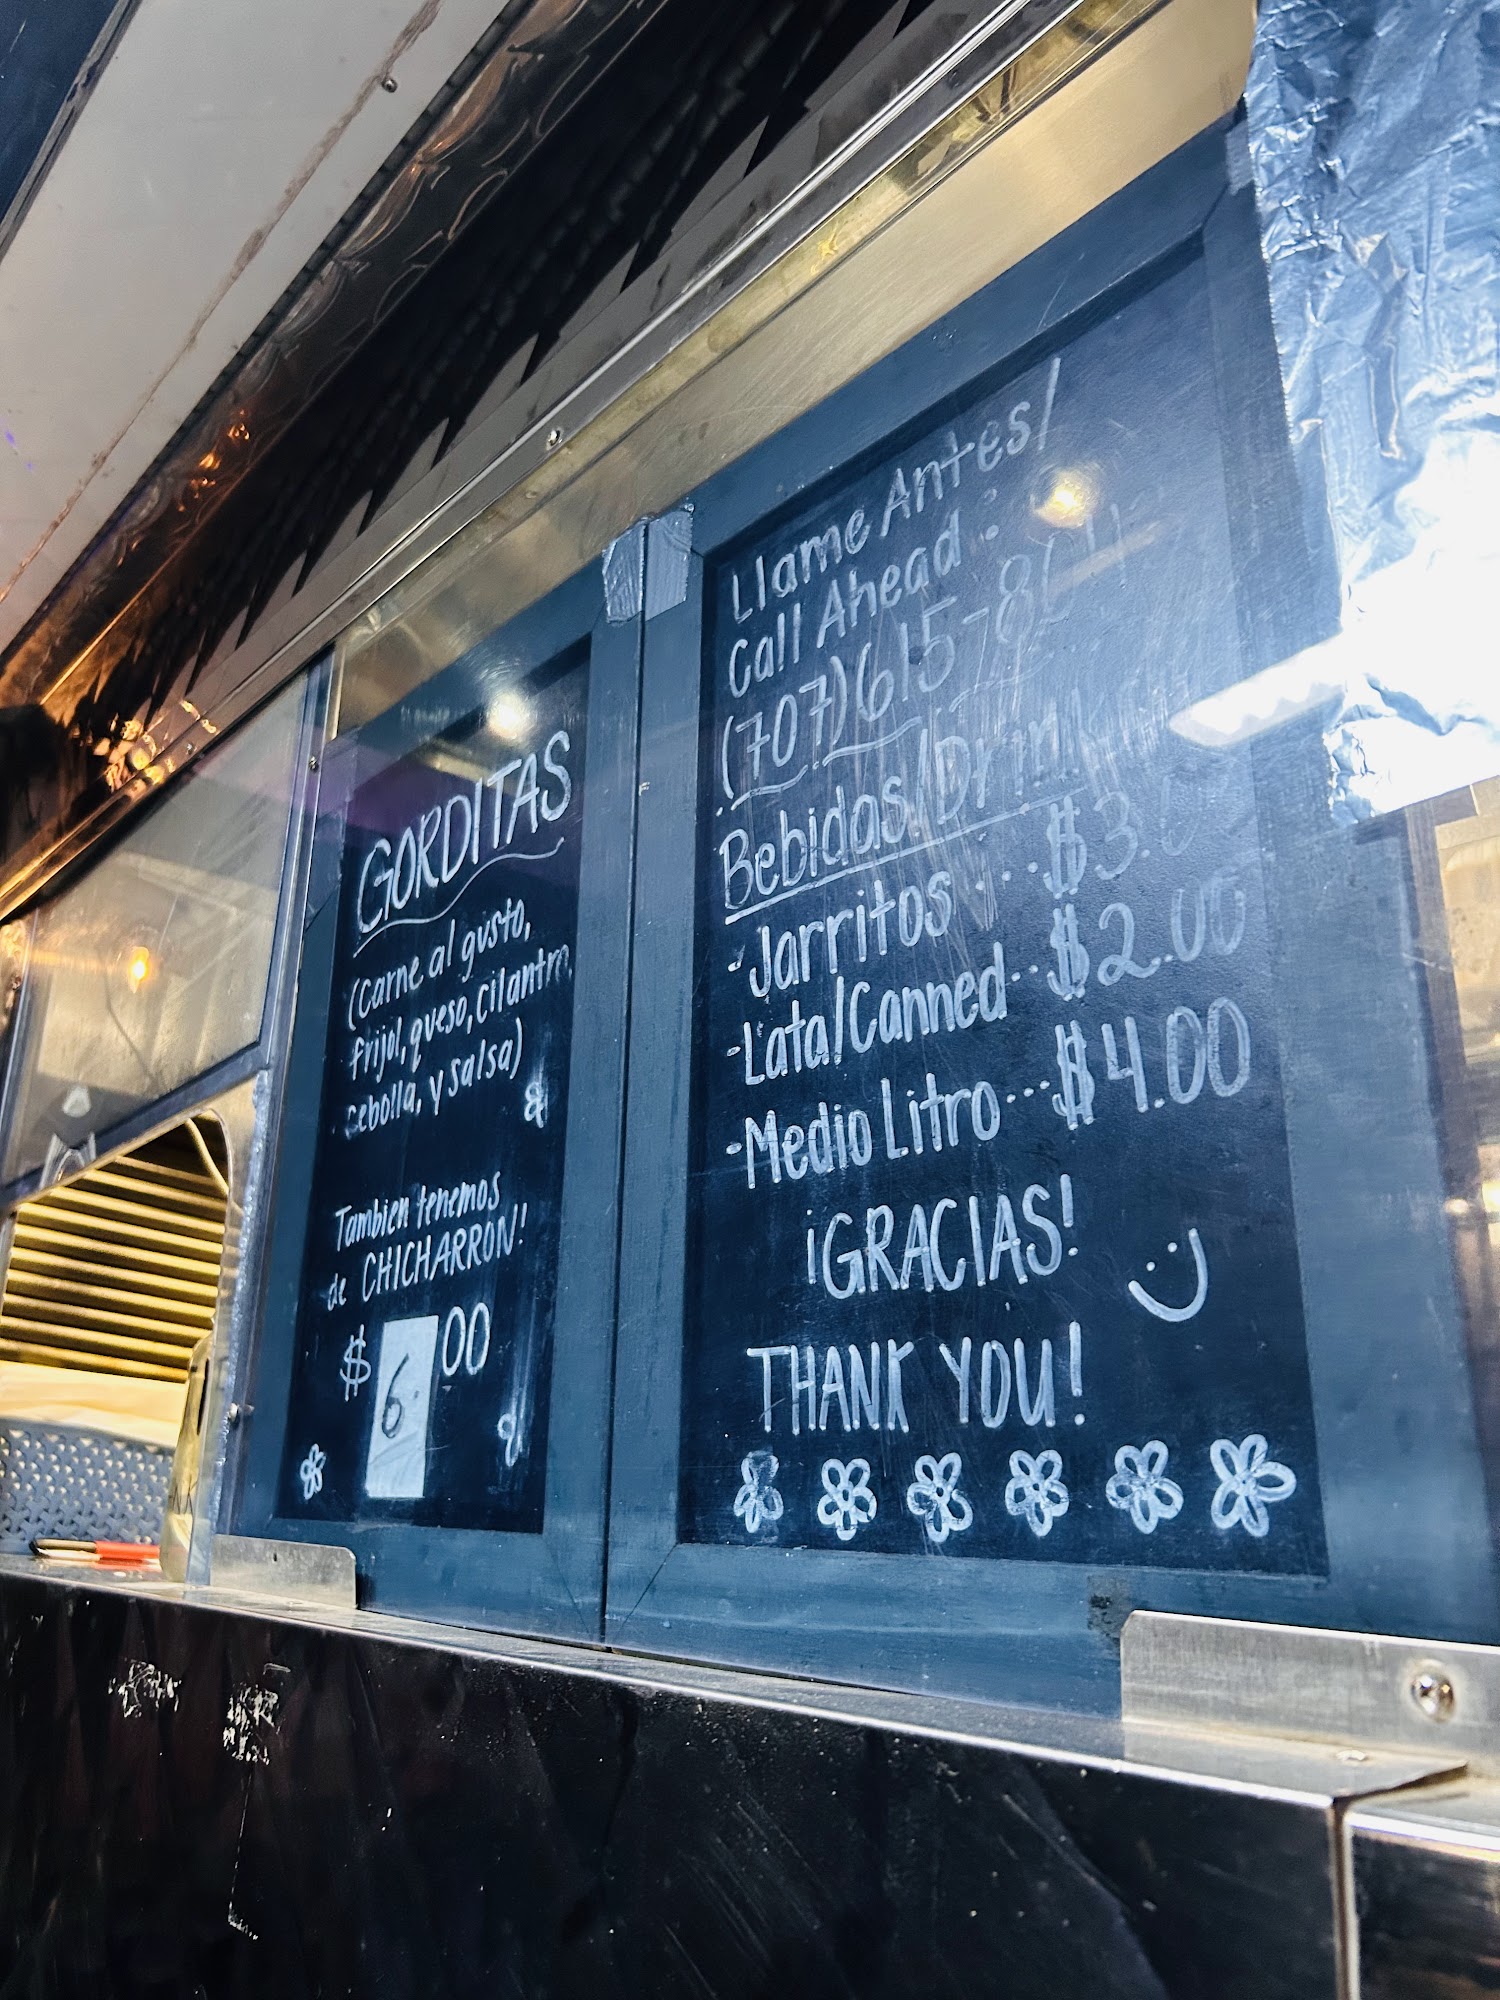 GORDITAS
(carne al gusto,
frijol, queso, cilantro,
cebolla, y salsa)
Tambien tenemos
de CHICHARRON!
$6.00
Llame Antes/
Call Ahead:
(707)615-8
Bebidas/Drin
-Jarritos...$3.
-Lata/Canned..$2.00
-Medio Litro...$4.00
¡GRACIAS!
THANK YOU!